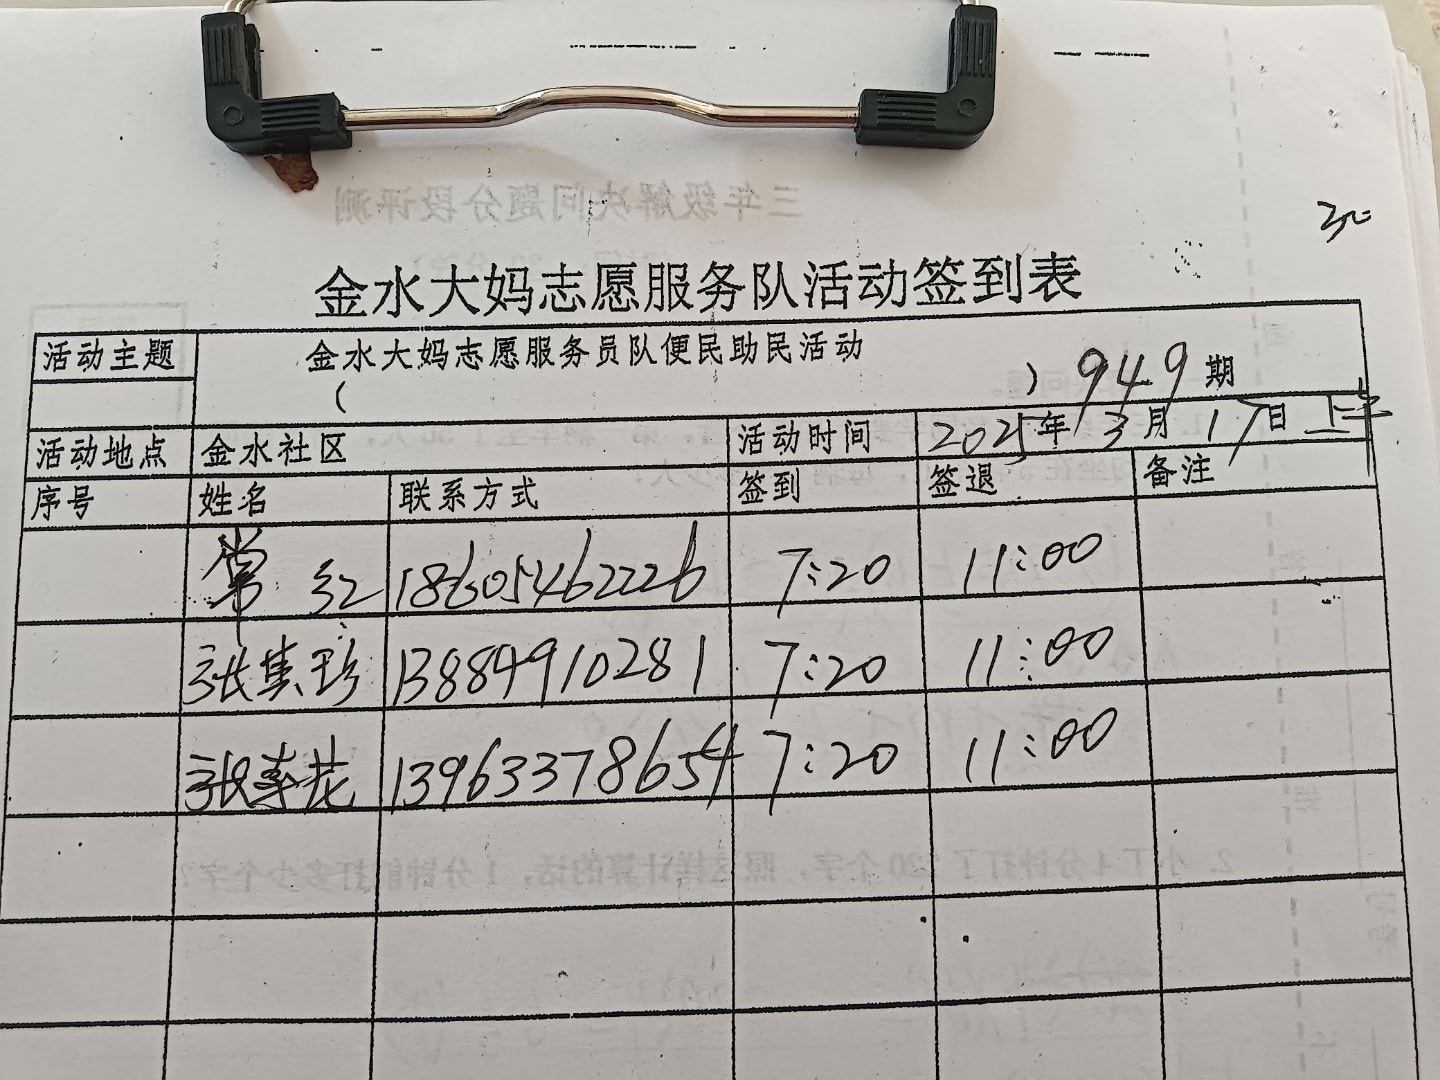 金水大妈志愿服务队活动签到表
活动主题 金水大妈志愿服务员队便民助民活动
( ) 949期
活动地点 金水社区 活动时间 2025年3月17日上午
序号 姓名 联系方式 签到 签退 备注
常红 18605462226 7:20 11:00
张集珍 13884910281 7:20 11:00
张春花 13963378654 7:20 11:00